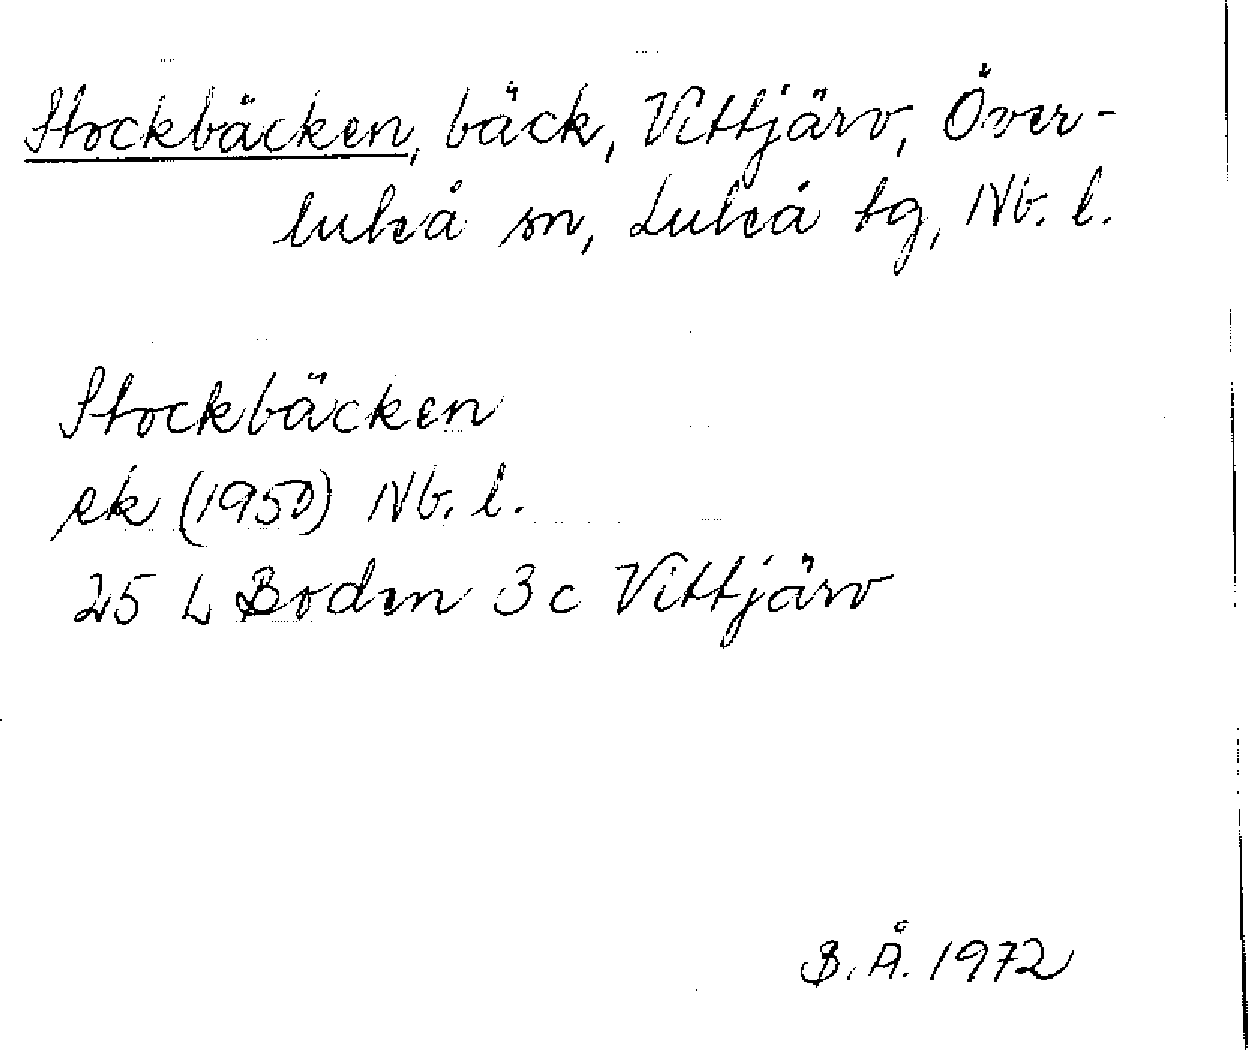 Stockbäcken, bäck, Vittjärv, Över-
luleå sn, Luleå tg, Nb. l.
Stockbäcken
ek (1950) Nb. l.
25 L Boden 3c Vittjärv
B.Å. 1972